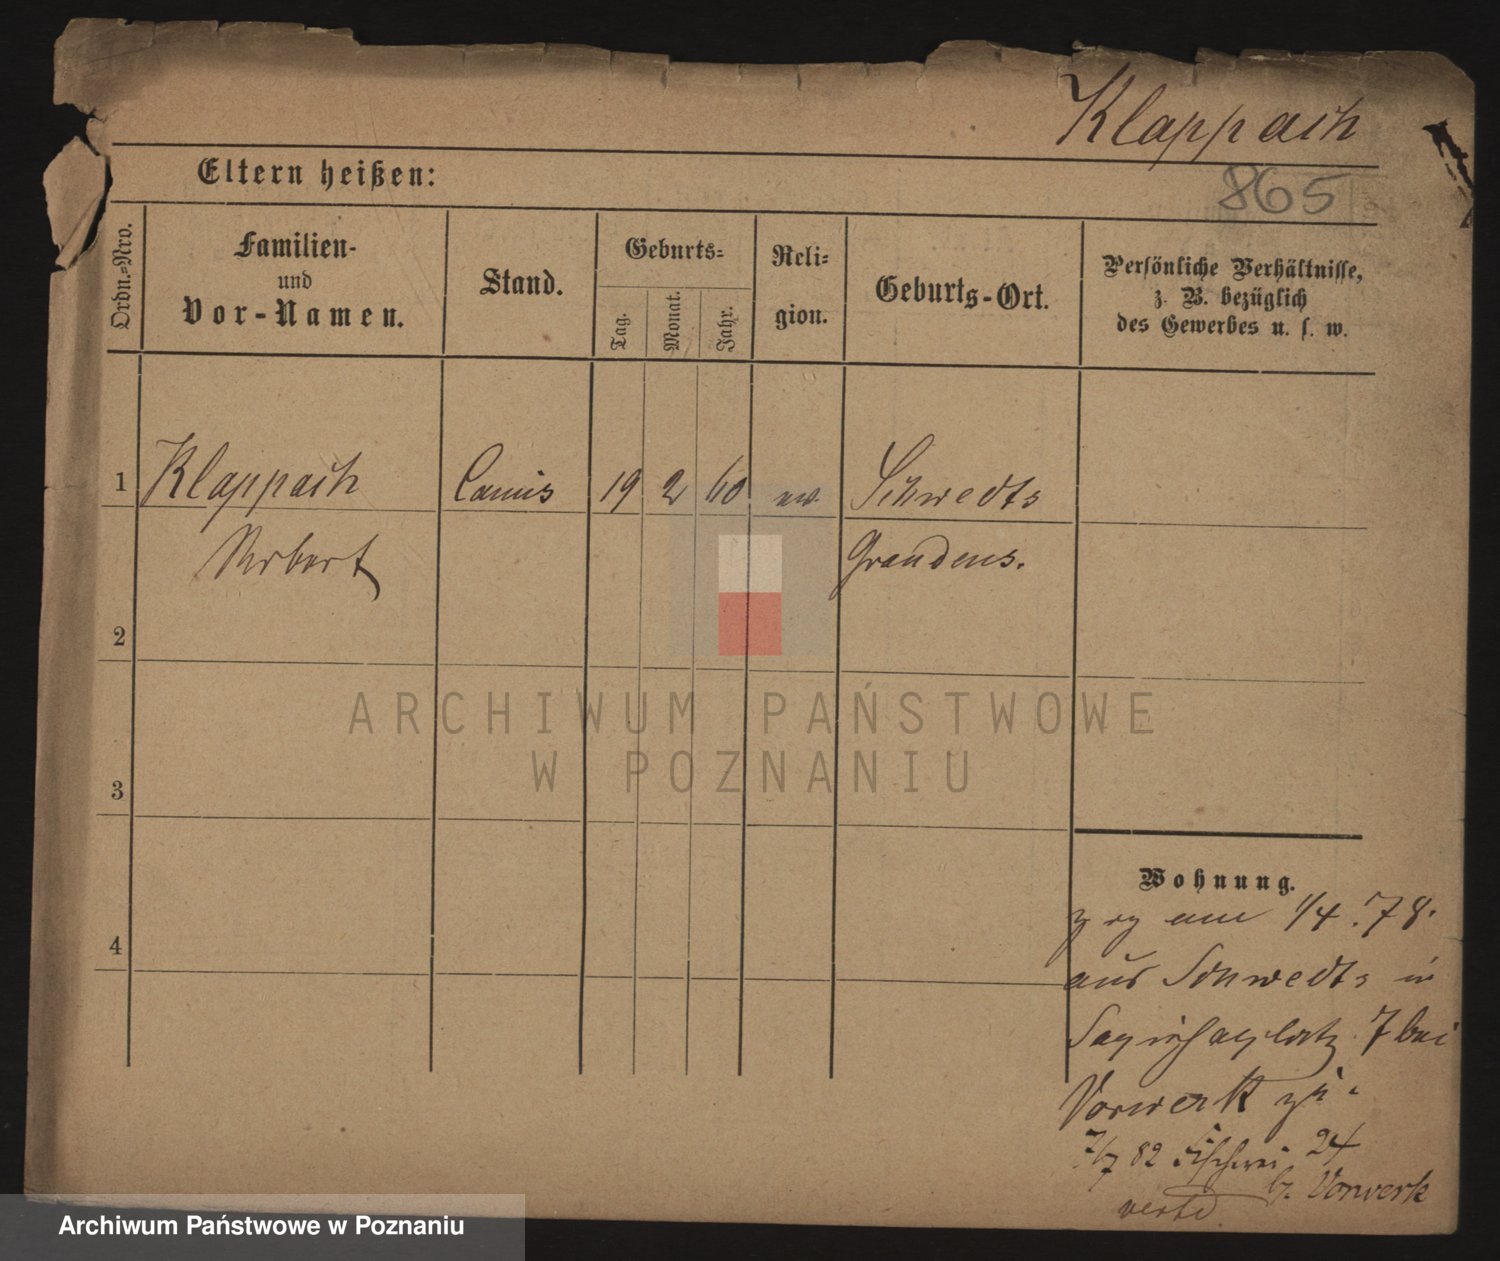 Klappach
865
Eltern heißen:
Ordn.-Nro.
Familien-
und
Vor-Namen.
Stand.
Geburts-
Tag.
Monat.
Jahr.
Reli-
gion.
Geburts-Ort.
Persönliche Verhältnisse,
z. B. bezüglich
des Gewerbes u. s. w.
1 Klappach Comis 19 2 60 ev. Schwedts
Graudens.
2
3
4
ARCHIWUM PAŃSTWOWE
W POZNANIU
Wohnung.
am 1/4. 78.
aus Schwedts in
Sapiehaplatz 7 bei
Vorwerk zu.
7/7 82 Fischerei 24
b. Vorwerk
verte
Archiwum Państwowe w Poznaniu